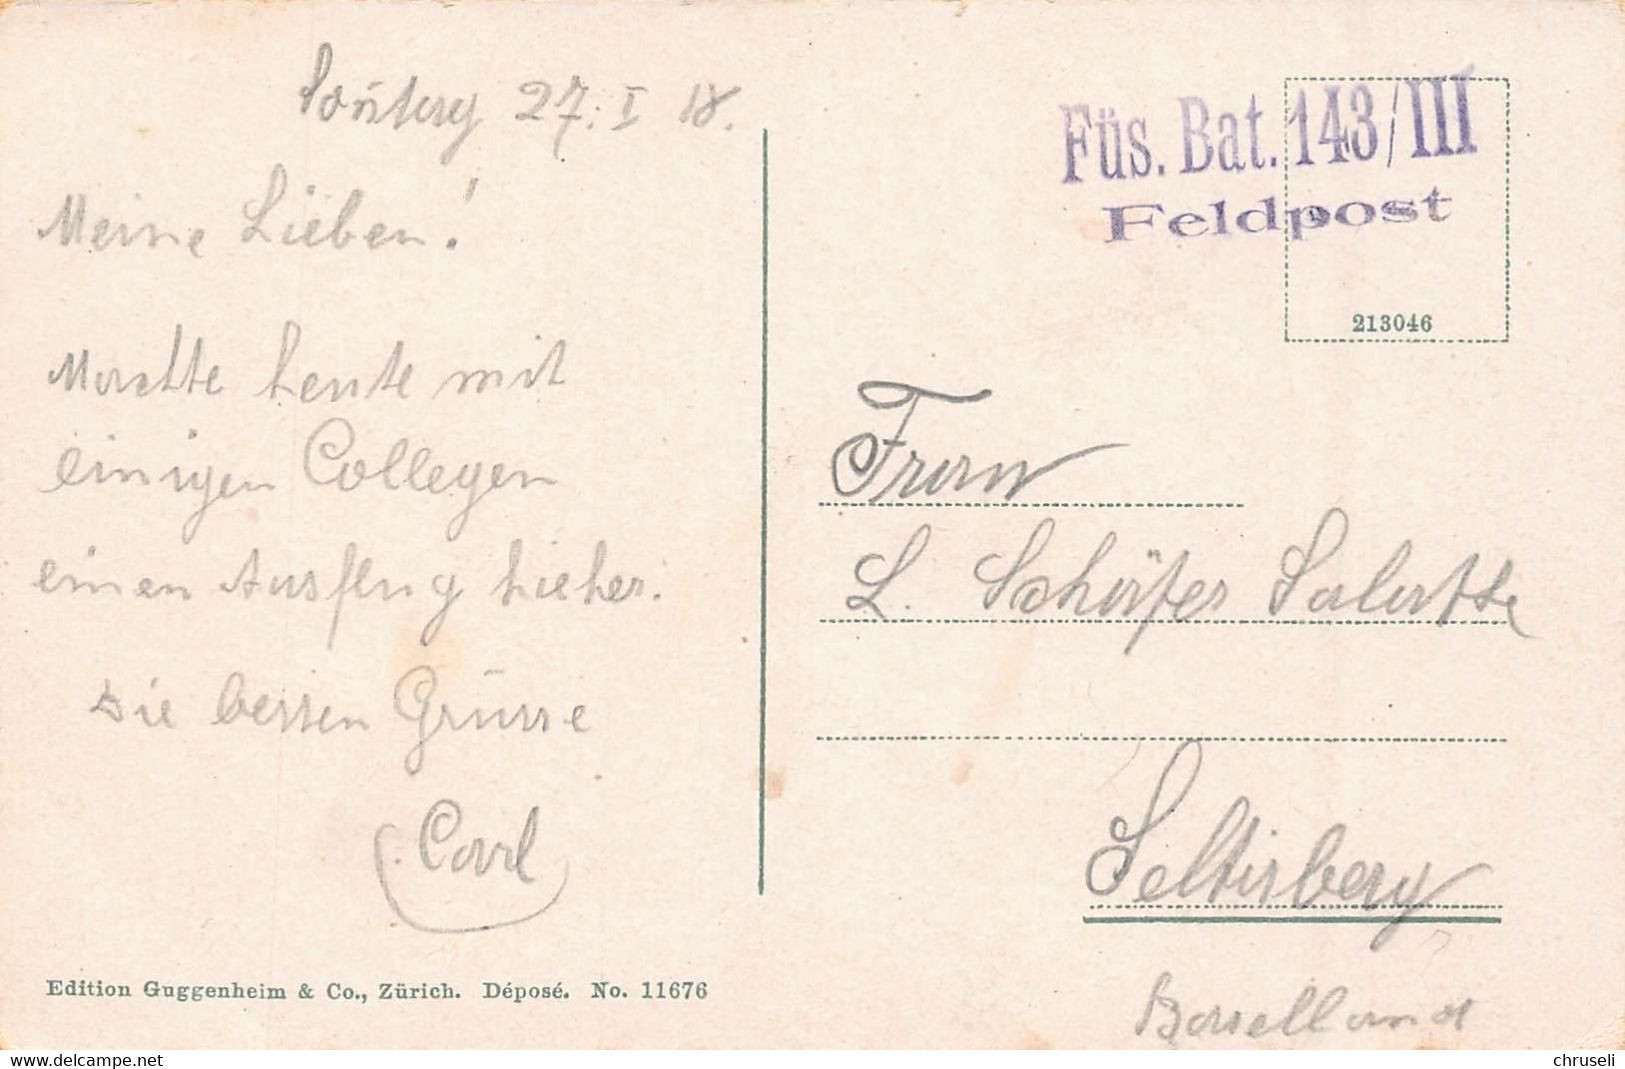 Sontag 27. I 18.
Meine Lieben!
Machte heute mit
einigen Collegen
einen Ausflug hieher.
Die besten Grüsse
Carl
Edition Guggenheim & Co., Zürich. Déposé. No. 11676
Füs. Bat. 143/III
Feldpost
213046
Frau
L. Schäfer
Seltisberg
Baselland
www.delcampe.net
chruseli